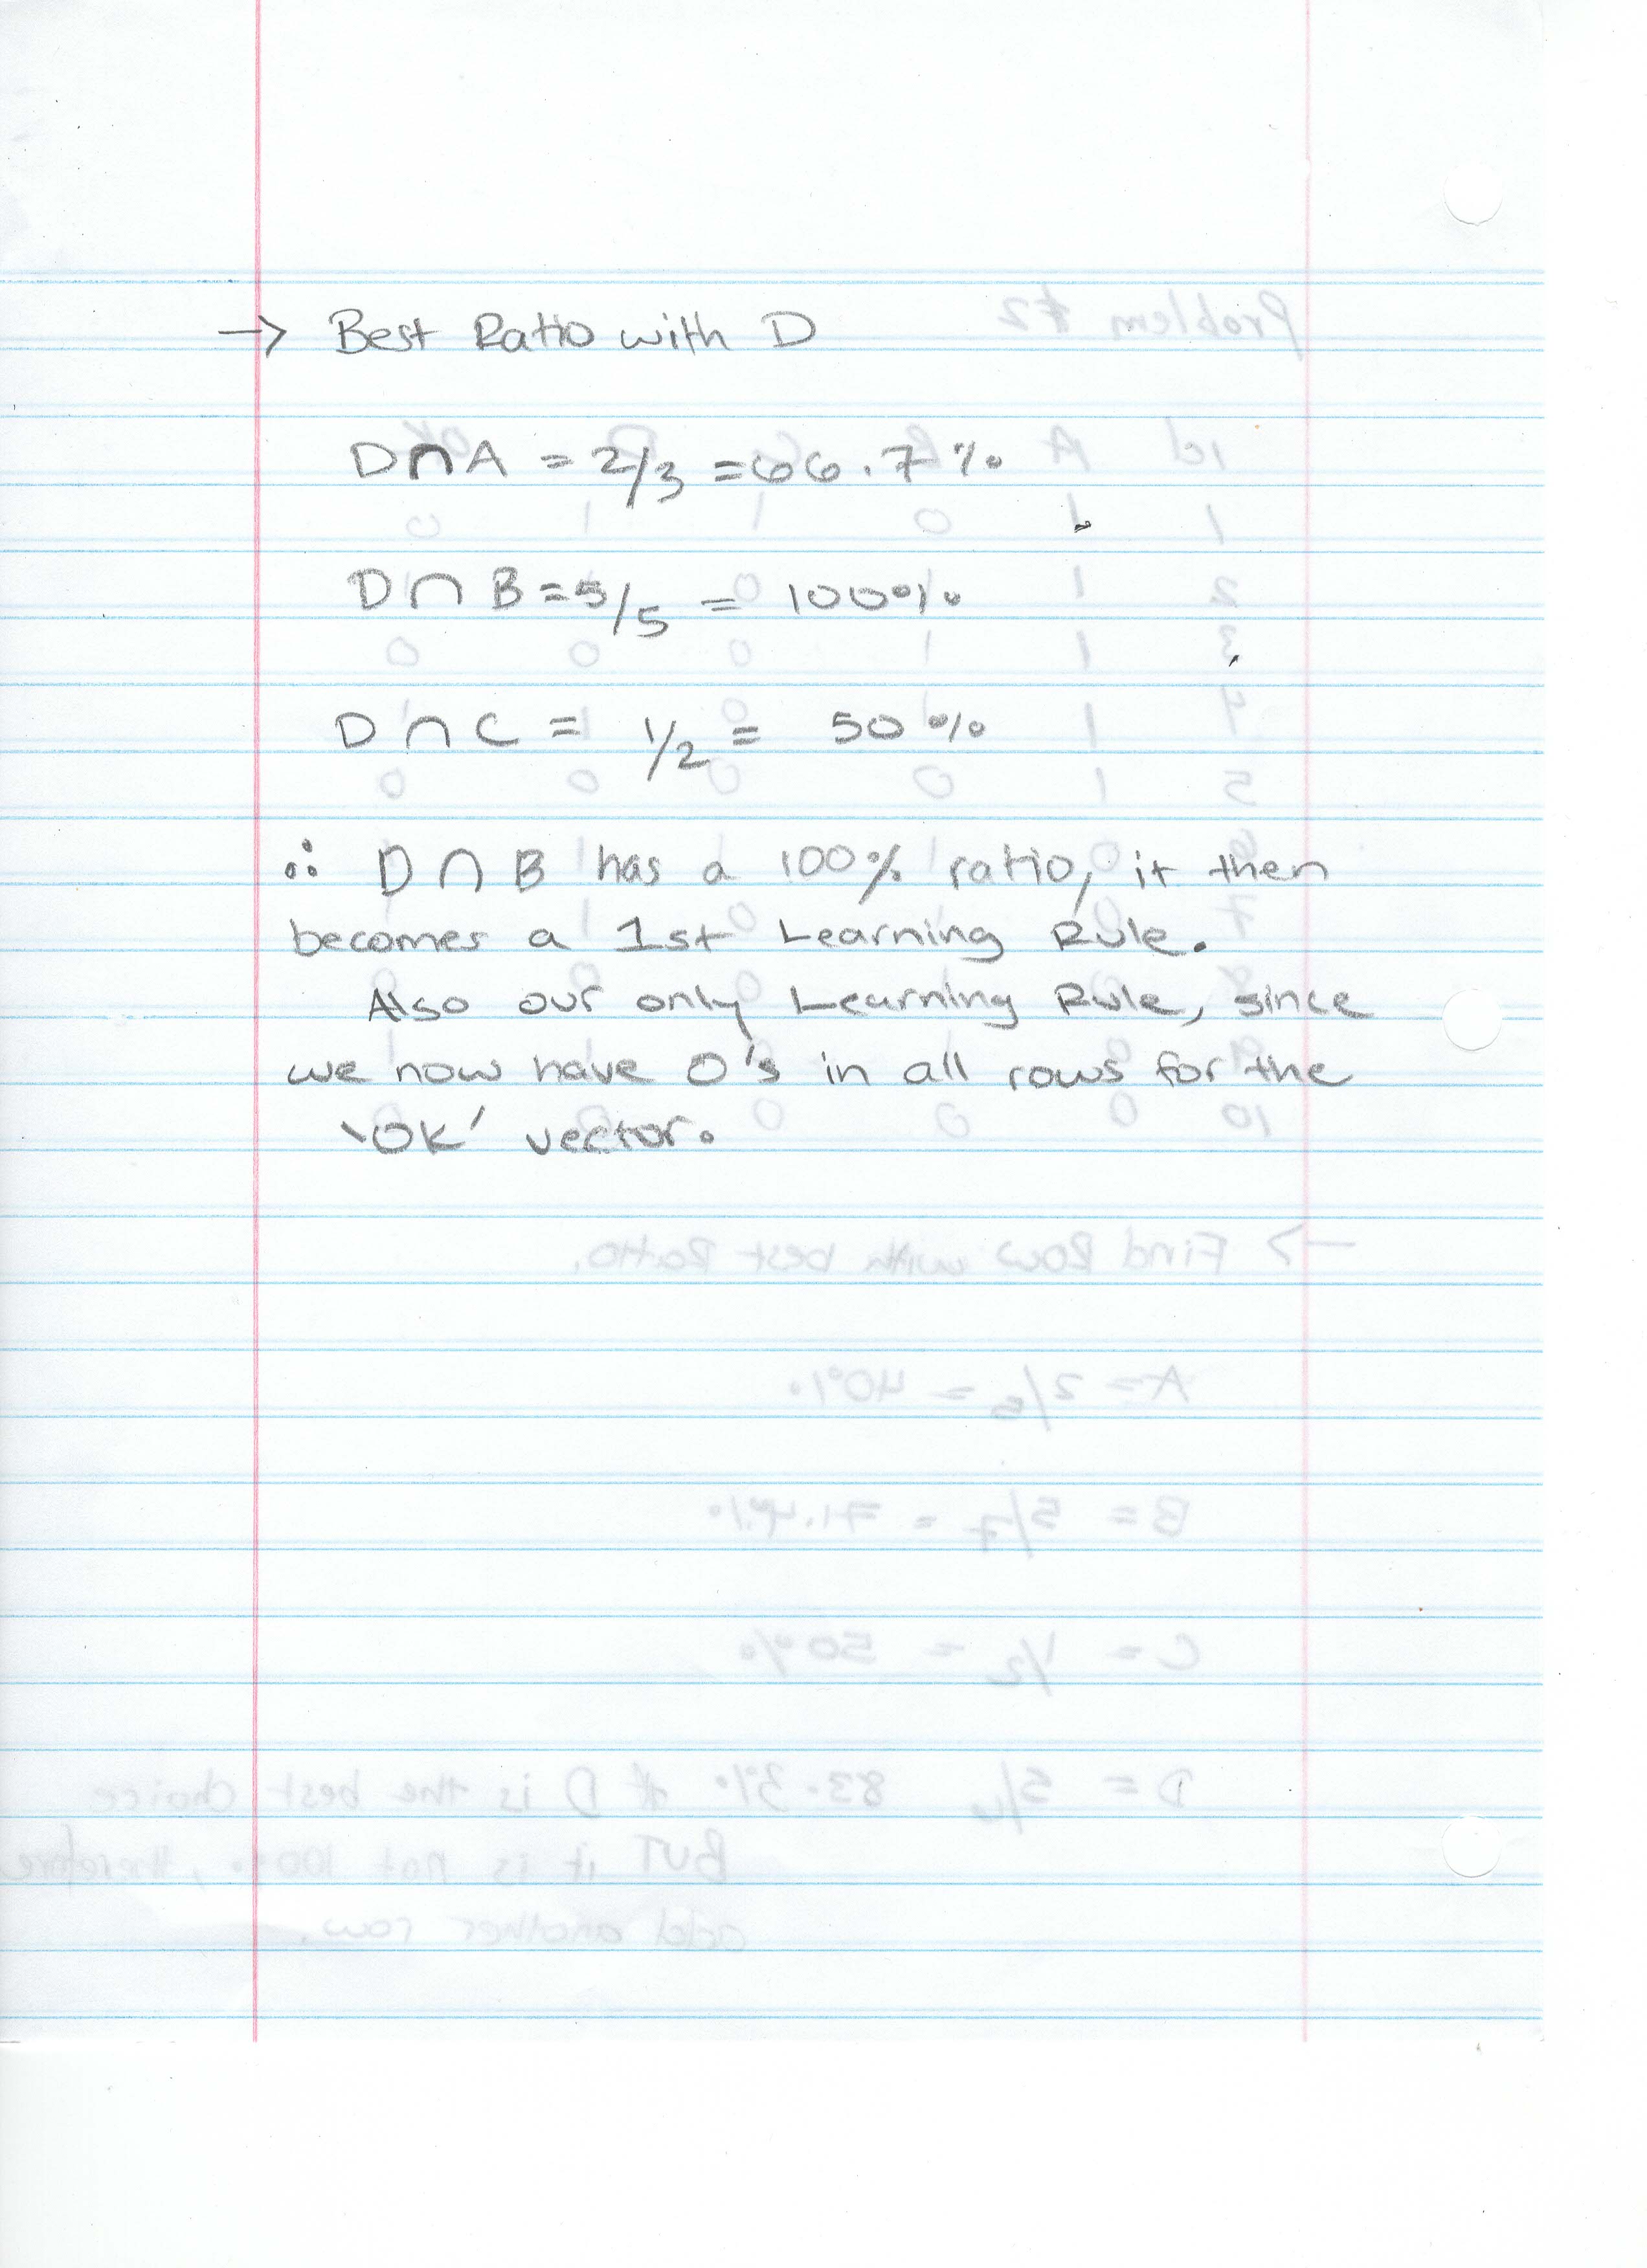 → Best Ratio with D
D∩A = 2/3 = 66.7%
D∩B = 5/5 = 100%
D∩C = 1/2 = 50%
∴ D∩B has a 100% ratio, it then
becomes a 1st Learning Rule.
Also our only Learning Rule, since
we now have 0's in all rows for the
'OK' vector.